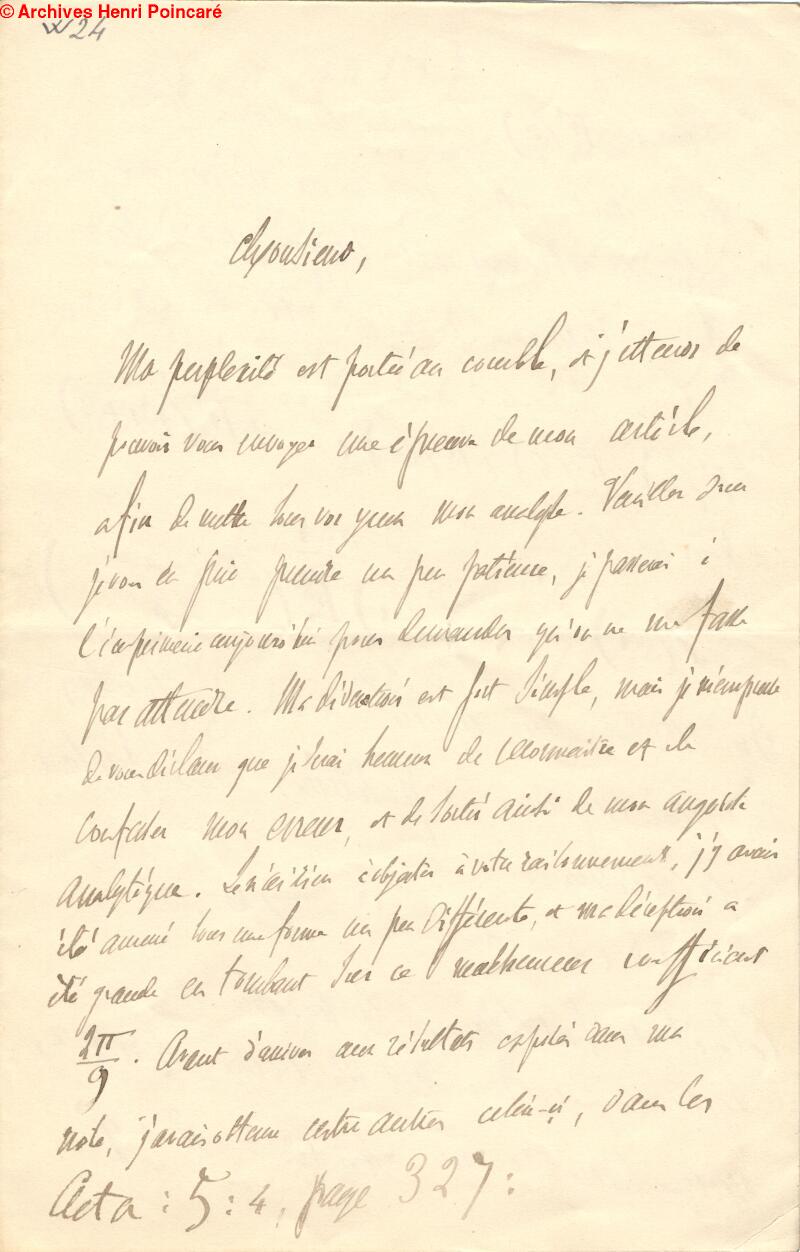 © Archives Henri Poincaré
24
Monsieur,
Ma perplexité est portée au comble, et j'attends de
pouvoir vous envoyer une épreuve de mon article,
afin de mettre sous vos yeux mon analyse. Veuillez donc
je vous en prie prendre un peu patience, je passerai à
l'imprimerie aujourd'hui pour demander qu'on ne me fasse
pas attendre. Ma déduction est fort simple, mais je m'empresse
de vous déclarer que je serai heureux de reconnaitre et de
confesser mon erreur, et de sortir ainsi de mon angoisse
analytique. Je n'ai rien à objecter à votre raisonnement, j'y avais
été amené sous une forme un peu différente, et ma déception a
été grande en tombant sur ce malheureux coefficient
2π/9. Avant d'arriver aux résultats exposés dans ma
note, j'avais obtenu entre autres celui-ci, dans les
Acta : 5 : 4, page 327 :